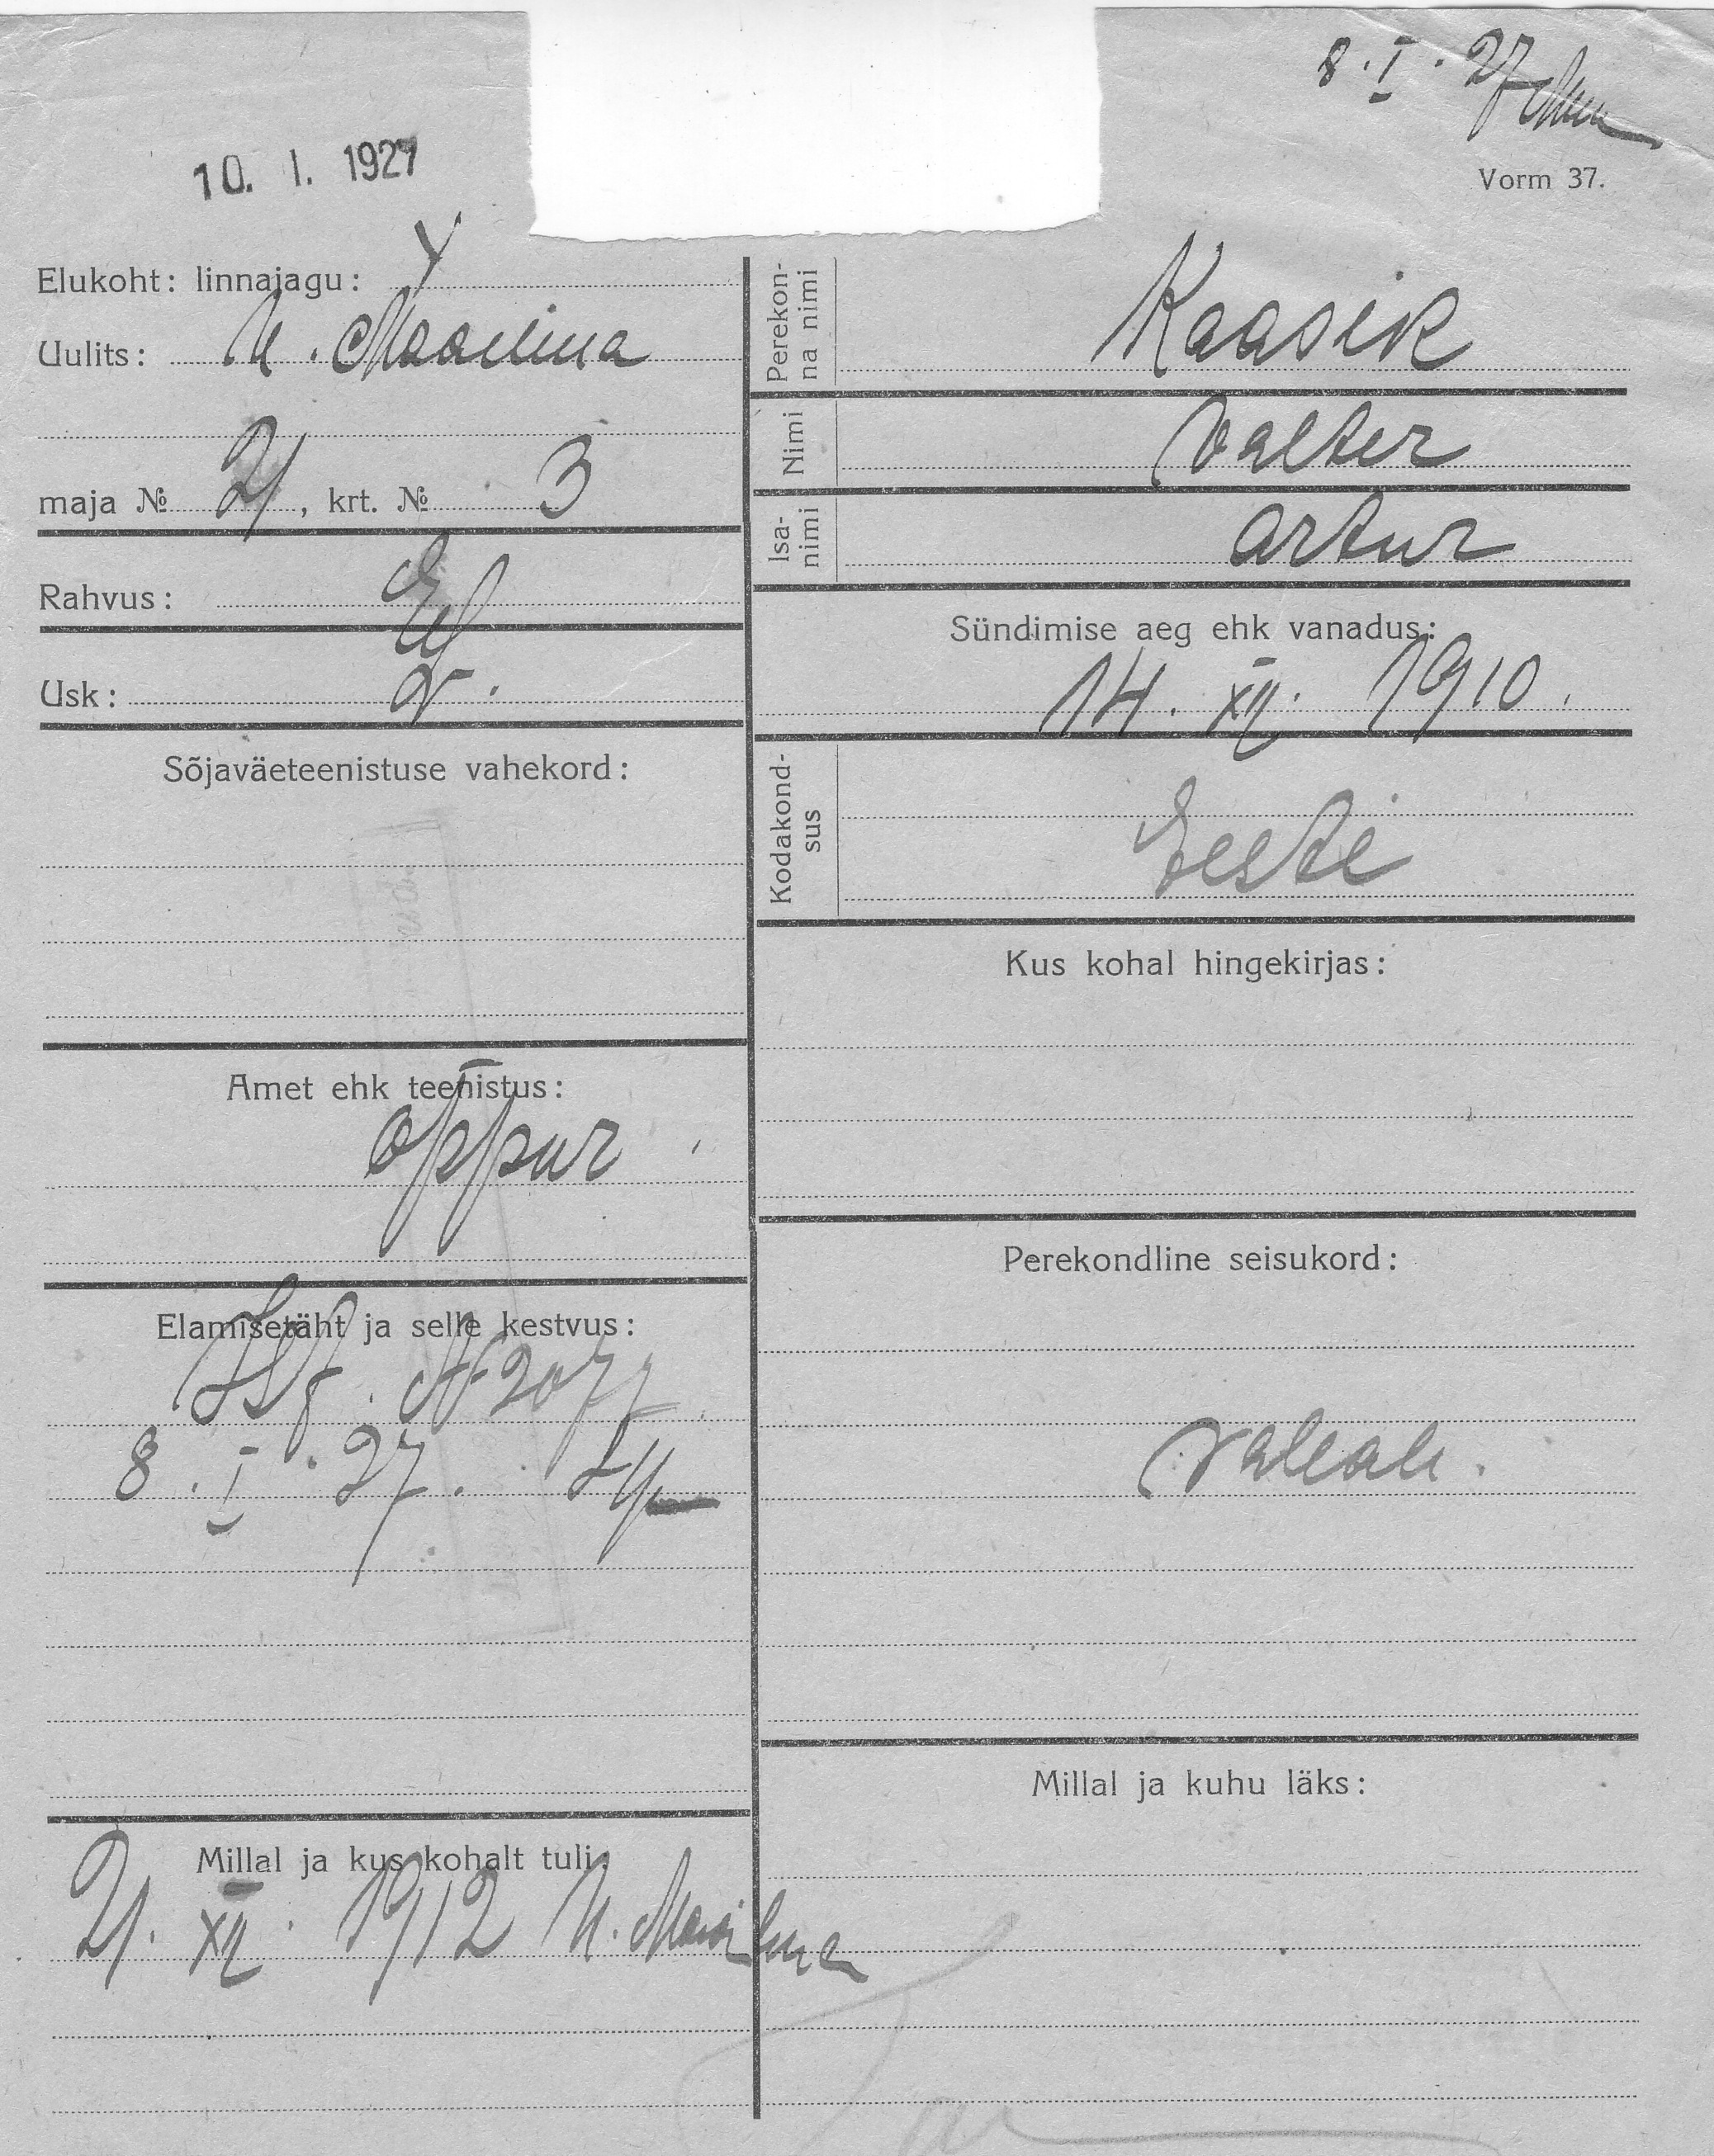 8. I. 27
10. I. 1927
Vorm 37.
Elukoht: linnajagu: Y
Uulits: U. Maailma
maja № 21, krt. № 3
Rahvus: E
Usk:
Sõjaväeteenistuse vahekord:
Amet ehk teenistus:
õppur
Elamisetäht ja selle kestvus:
Isf. N 2077
8. I. 27.
Millal ja kus kohalt tuli:
21. XII. 1912 U. Maailma
Perekonna nimi
Kaasik
Nimi
Valter
Isanimi
Artur
Sündimise aeg ehk vanadus:
14. XII. 1910.
Kodakondsus
Eesti
Kus kohal hingekirjas:
Perekondline seisukord:
vallali.
Millal ja kuhu läks: